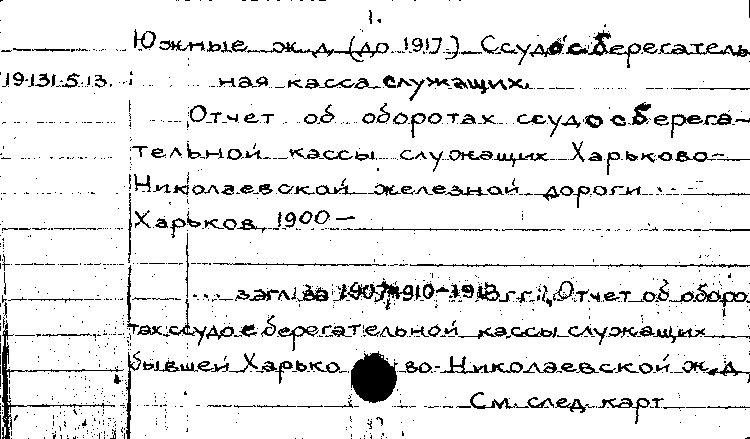 1.
Южные ж.д. (до 1917.) Ссудосберегатель-
19.131.5.13. ная касса служащих.
Отчет об оборотах ссудосберега-
тельной кассы служащих Харьково-
Николаевской железной дороги ...
Харьков, 1900 —
... загл. за 1907, 1910-1912 г.г.: Отчет об оборо
тах ссудосберегательной кассы служащих
бывшей Харьково-Николаевской ж.д.
См. след. карт